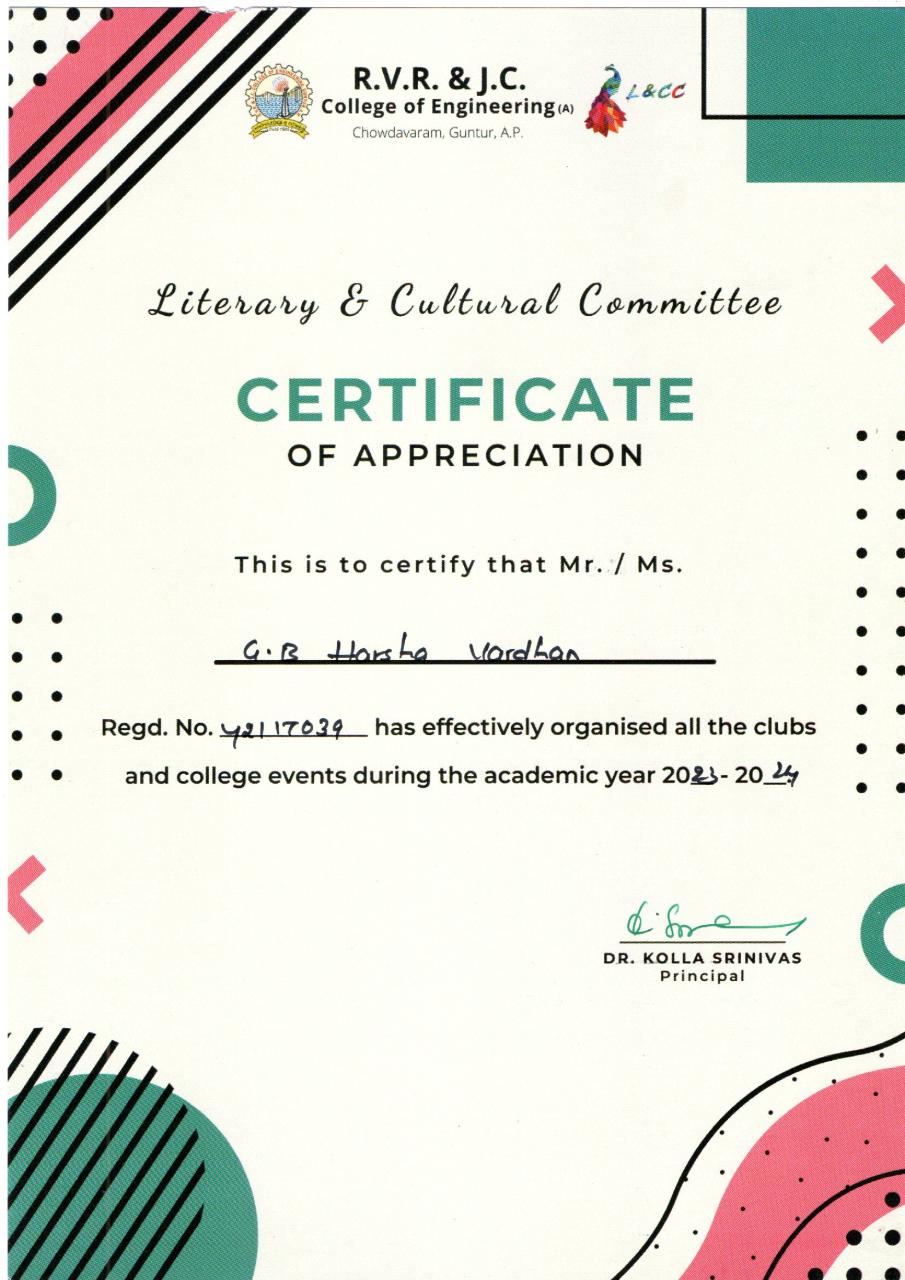 R.V.R. & J.C.
College of Engineering (A)
Chowdavaram, Guntur, A.P.
L&CC
Literary & Cultural Committee
CERTIFICATE
OF APPRECIATION
This is to certify that Mr. / Ms.
G.B Harsha Vardhan
Regd. No. Y21IT039 has effectively organised all the clubs
and college events during the academic year 2023-2024
DR. KOLLA SRINIVAS
Principal